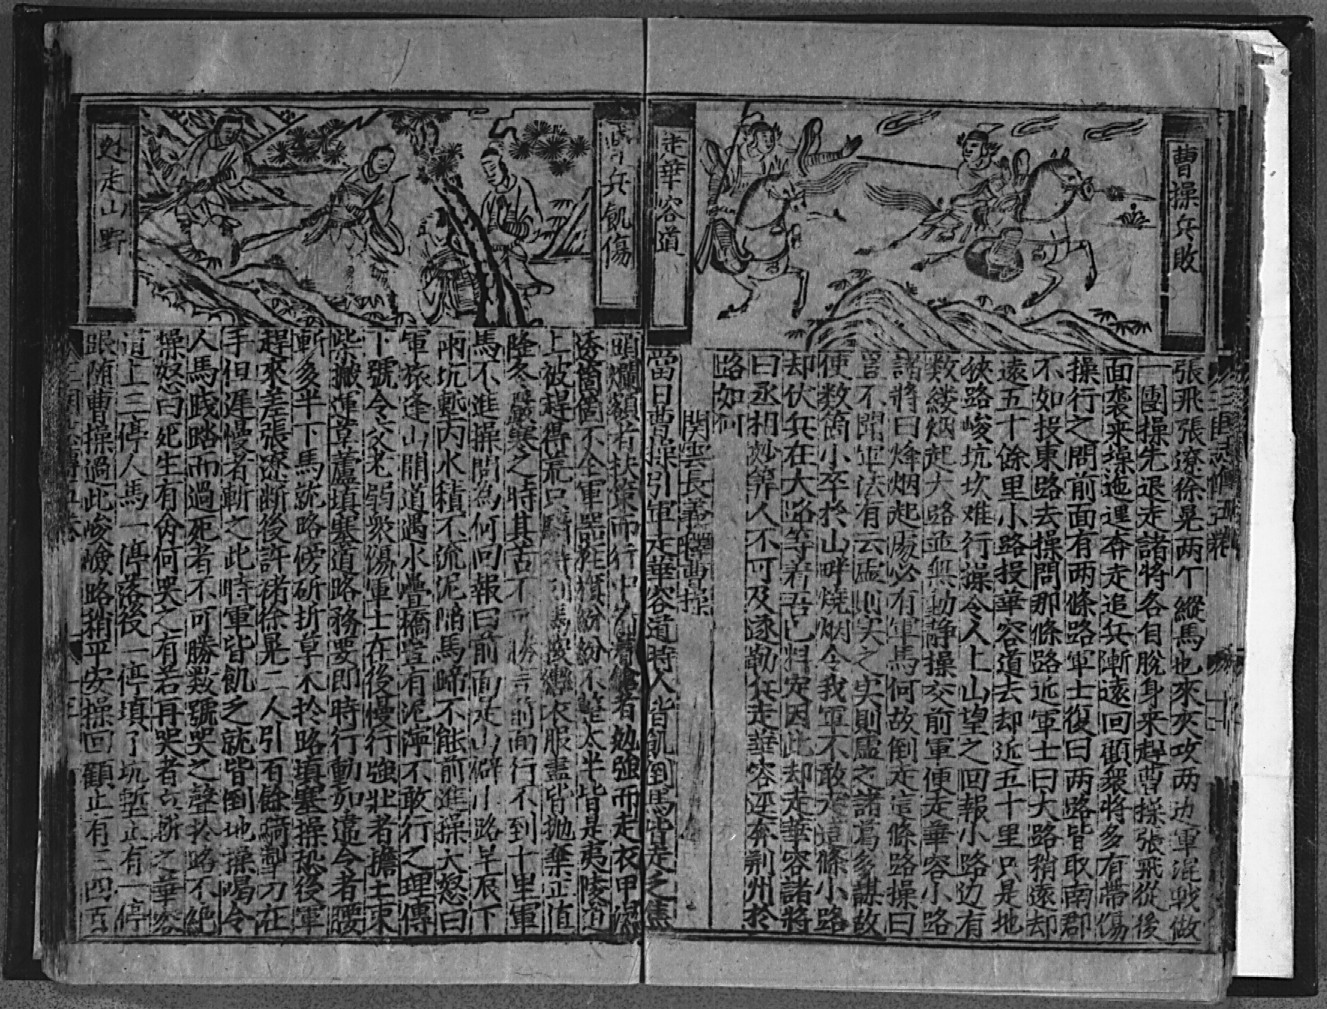 曹操兵敗
走華容道
張飛張遼徐晃两下縱馬也來夾攻两边軍混戰做
一團操先退走諸將各自脫身来趕曹操張飛從後
面襲来操迤逞奔走追兵漸遠回顧衆將多有帶傷
操行之間前面有两條路軍士復曰两路皆取南郡
不如投東路去操問那條路近軍士曰大路稍遠却
遠五十餘里小路投華容道去却近五十里只是地
狹路峻坑坎难行操令人上山望之回報小路边有
数縷烟起大路並無動静操交前軍便走華容小路
諸將曰烽烟起處必有軍馬何故倒走這條路操曰
豈不聞軍法有云虛則实之实則虛之諸葛多謀故
便数箇小卒扵山畔燒烟令我軍不敢走這條小路
却伏兵在大路等着吾已料定因此却走華容諸將
曰丞相妙筭人不可及遂勒兵走華容逕奔荆州扵
路如何
関雲長義釋曹操
當日曹操引軍走華容道時人皆飢倒馬皆走乏焦
兵飢傷
走山野
頭爛額者扶策而行中者勉強而走衣甲濕
透箇箇不全軍器旌旗紛紛不整太半皆是夷陵道
上被趕得荒只騎得馬鞍轡衣服盡皆拋棄正值
隆冬嚴寒之時其苦不可勝言前面行不到十里軍
馬不進操問為何回報曰前面是山僻小路早辰下
雨坑塹內水積不流泥陷馬蹄不能前進操大怒曰
軍旅逢山開道遇水疊橋豈有泥濘不敢行之理傳
下號令交老弱衆傷軍士在後慢行強壯者擔土束
柴搬運草蘆填塞道路務要即時行動如違令者腰
斬多半下馬就路傍斫折草木扵路填塞操恐後軍
趕來差張遼斷後許禇徐晃二人引百餘騎掣刀在
手但遲慢者斬之此時軍皆飢乏就皆倒地操喝令
人馬踐踏而過死者不可勝数號哭之聲扵路不絶
操怒曰死生有命何哭之有若再哭者立斬之華容
道上三停人馬一停落後一停填了坑塹止有一停
跟随曹操過此峻嶮路稍平安操回顧止有三四百